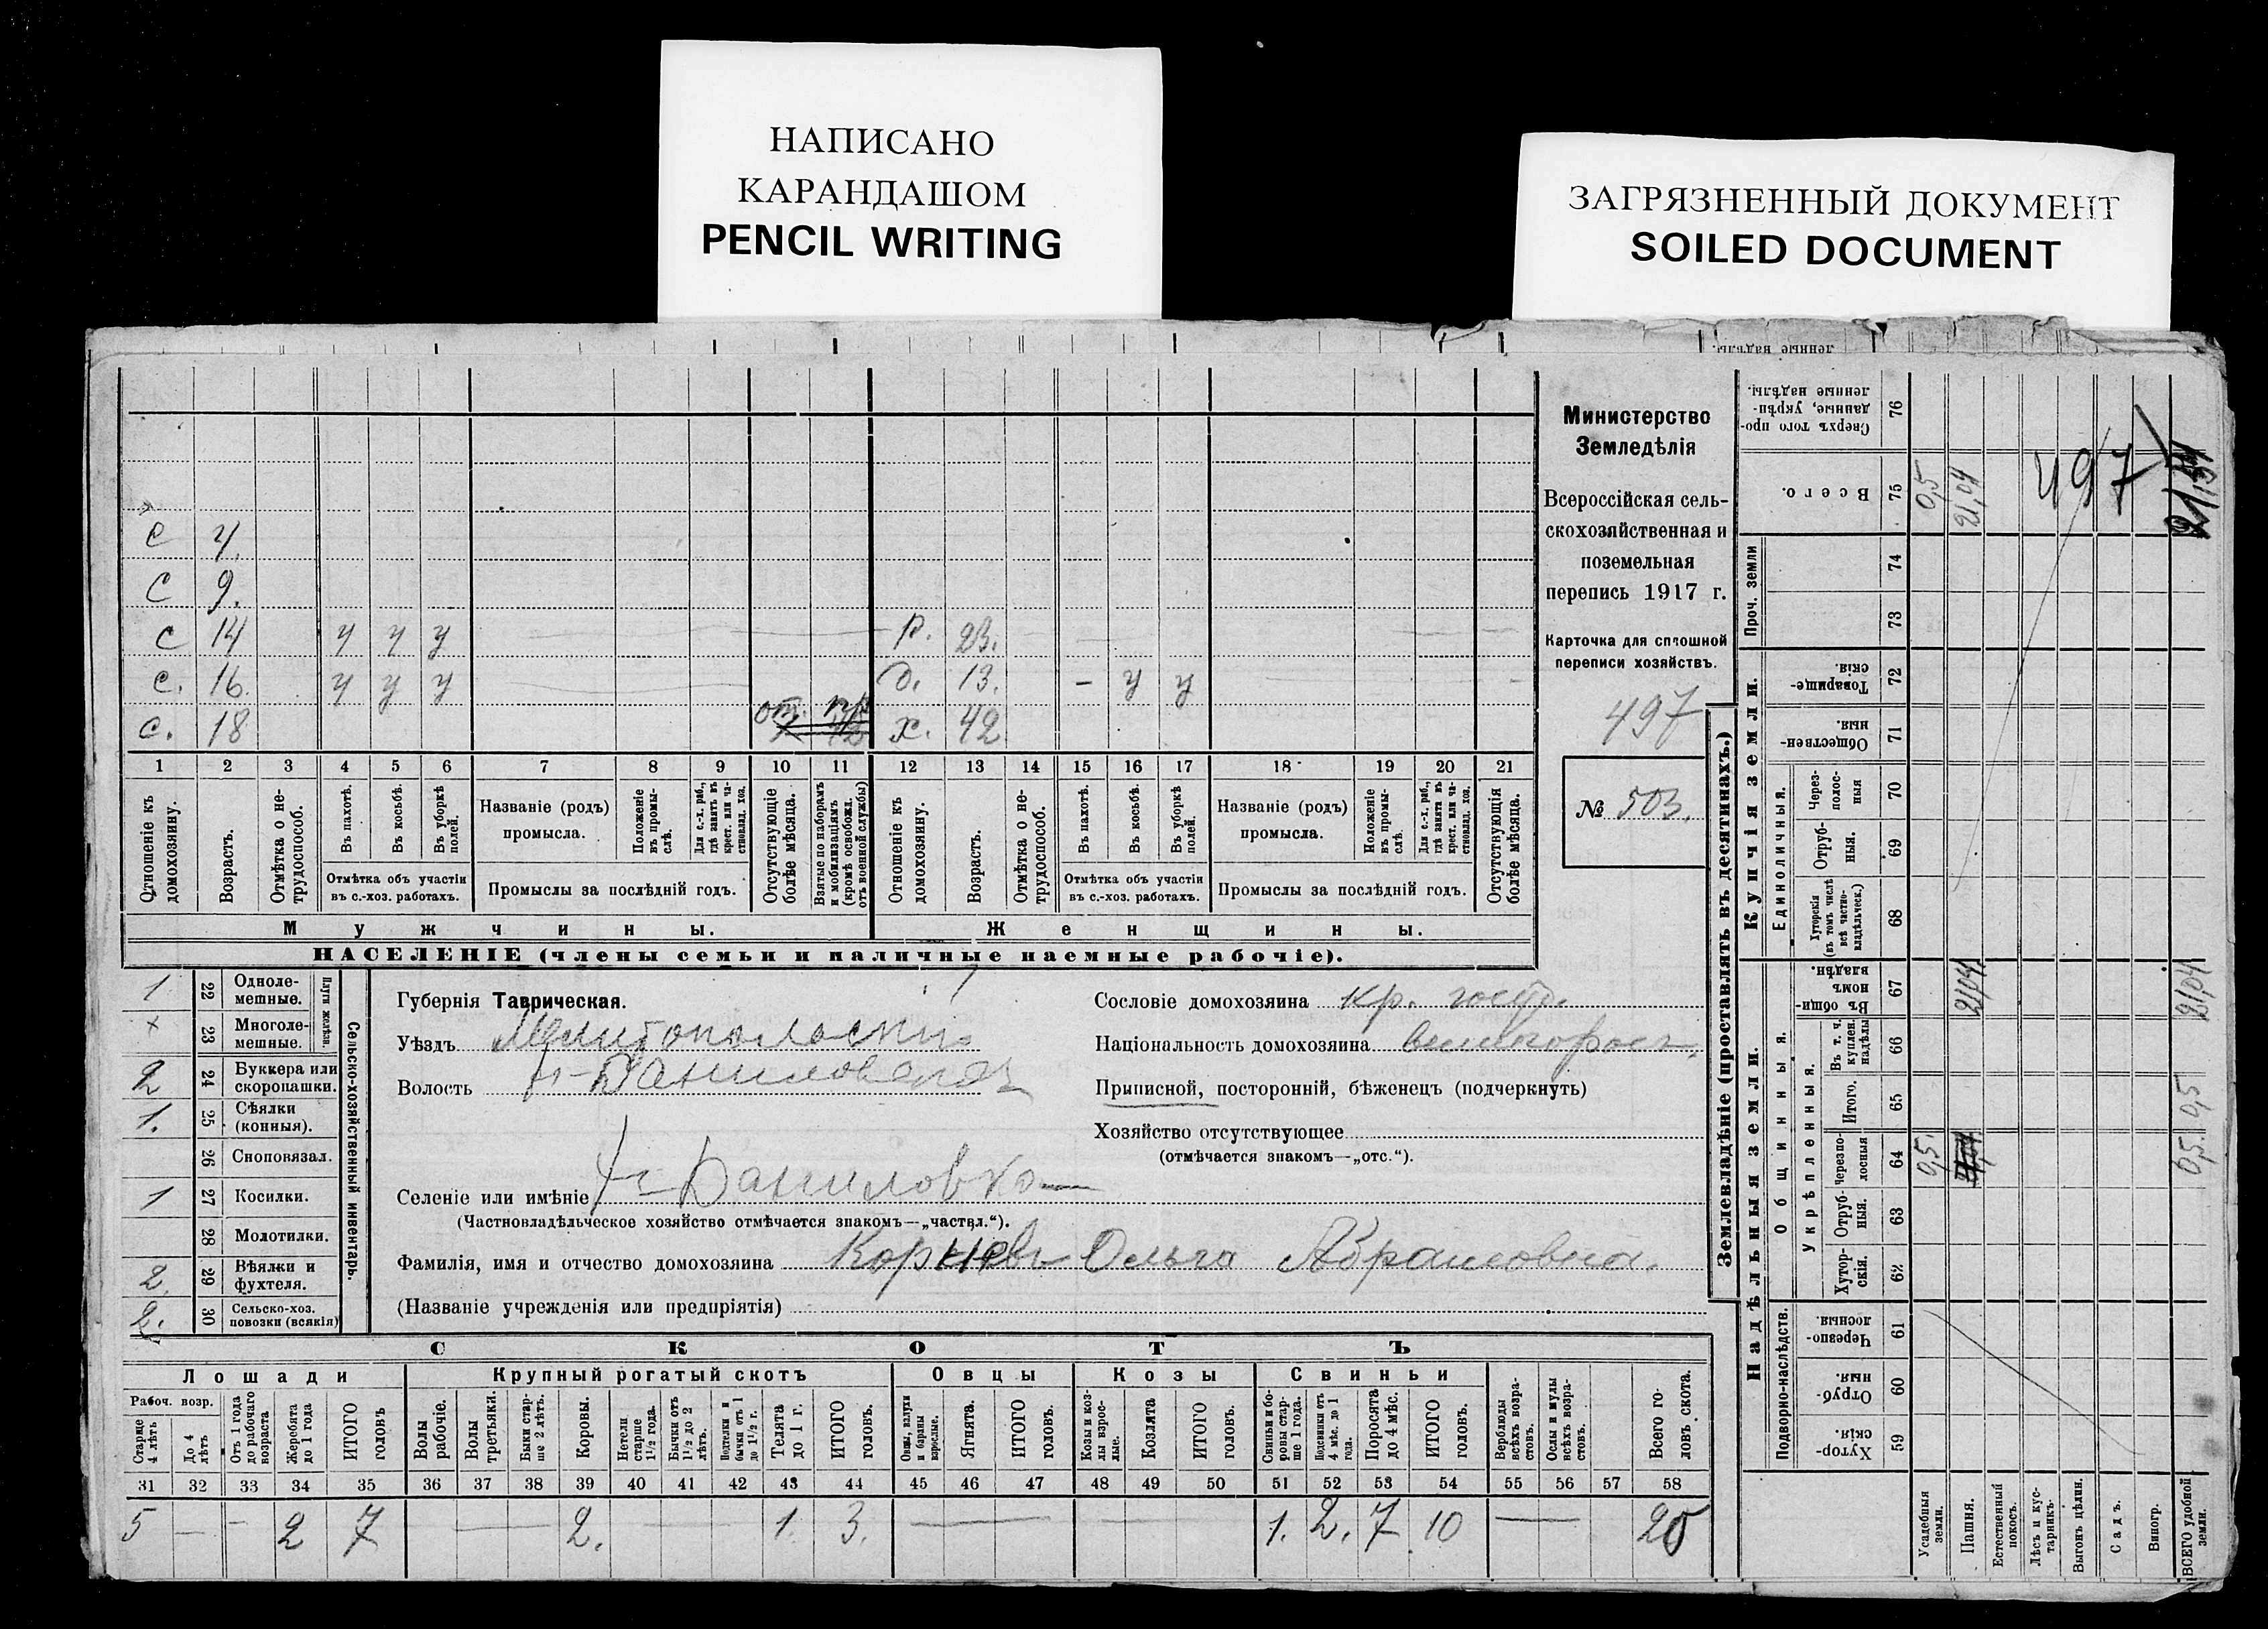 НАПИСАНО
КАРАНДАШОМ
PENCIL WRITING
ЗАГРЯЗНЕННЫЙ ДОКУМЕНТ
SOILED DOCUMENT
Министерство
Земледѣлія
Всероссійская сель-
скохозяйственная и
поземельная
перепись 1917 г.
Карточка для сплошной
переписи хозяйствъ.
497
№ 503.
с 4.
с 9.
с 14 у у у р. 23.
с. 16. у у у д. 13. – у у
с. 18 от. х. 42
1 2 3 4 5 6 7 8 9 10 11 12 13 14 15 16 17 18 19 20 21
Отношеніе къ домохозяину.
Возрастъ.
Отмѣтка о не-трудоспособ.
Въ пахотѣ.
Въ косьбѣ.
Въ уборкѣ полей.
Отмѣтка объ участіи
въ с.-хоз. работахъ.
Названіе (родъ)
промысла.
Положеніе въ промы-слѣ.
Для с.-х. раб., гдѣ занятъ въ крест. или ча-стновлад. хоз.
Промыслы за послѣдній годъ.
Отсутствующіе болѣе мѣсяца.
Взятые по наборамъ и мобилизаціямъ (кромѣ освобожд. отъ военной службы)
Отношеніе къ домохозяину.
Возрастъ.
Отмѣтка о не-трудоспособ.
Въ пахотѣ.
Въ косьбѣ.
Въ уборкѣ полей.
Отмѣтка объ участіи
въ с.-хоз. работахъ.
Названіе (родъ)
промысла.
Положеніе въ промы-слѣ.
Для с.-х. раб., гдѣ занята въ крест. или ча-стновлад. хоз.
Промыслы за послѣдній годъ.
Отсутствующія болѣе мѣсяца.
Мужчины. Женщины.
НАСЕЛЕНІЕ (члены семьи и наличные наемные рабочіе).
1 22 Одноле-мешные.
х 23 Многоле-мешные.
Плуги желѣзн.
2 24 Буккера или скоропашки.
1. 25 Сѣялки (конныя).
26 Сноповязал.
1 27 Косилки.
28 Молотилки.
2. 29 Вѣялки и фухтеля.
2. 30 Сельско-хоз. повозки (всякія)
Сельско-хозяйственный инвентарь.
Губернія Таврическая.
Уѣздъ Мелитопольскій
Волость Н-Даниловская
Селеніе или имѣніе Н-Даниловка
(Частновладѣльческое хозяйство отмѣчается знакомъ—„частвл.“).
Фамилія, имя и отчество домохозяина Корневъ Ольга Абрамовна.
(Названіе учрежденія или предпріятія)
Сословіе домохозяина кр. госуд.
Національность домохозяина великоросс.
Приписной, посторонній, бѣженецъ (подчеркнуть)
Хозяйство отсутствующее
(отмѣчается знакомъ—„отс.“).
СКОТЪ
Лошади Крупный рогатый скотъ Овцы Козы Свиньи
Рабоч. возр.
Старше 4 лѣтъ
До 4 лѣтъ
Отъ 1 года до рабочаго возраста
Жеребята до 1 года
ИТОГО головъ
Волы рабочіе.
Волы третьяки.
Быки стар-ше 2 лѣтъ.
Коровы.
Нетели старше 1 1/2 года.
Бычки отъ 1 1/2 до 2 лѣтъ.
Подтелки и бычки отъ 1 до 1 1/2 г.
Телята до 1 г.
ИТОГО головъ.
Овцы, валухи и бараны взрослые.
Ягнята.
ИТОГО головъ.
Козы и коз-лы взрос-лые.
Козлята
ИТОГО головъ.
Свиньи и бо-ровы стар-ше 1 года.
Подсвинки отъ 4 мѣс. до 1 года.
Поросята до 4 мѣс.
ИТОГО головъ.
Верблюды всѣхъ возра-стовъ.
Ослы и мулы всѣхъ возра-стовъ.
Всего го-ловъ скота.
31 32 33 34 35 36 37 38 39 40 41 42 43 44 45 46 47 48 49 50 51 52 53 54 55 56 57 58
5 — - 2 7 — 2. — 1. 3. — — 1. 2. 7 10 — 20
Землевладѣніе (проставлять въ десятинахъ.)
Надѣльныя земли. Купчія земли. Проч. земли
Подворно-наслѣдств.
Общинныя.
Укрѣпленныя.
Единоличныя.
Хутор-скія. 59
Отруб-ныя. 60
Черезпо-лосныя 61
Хутор-скія. 62
Отруб-ныя. 63
Черезпо-лосныя 64
Итого. 65
Въ т. ч. куплен. надѣлы 66
Въ общин-номъ владѣн. 67
Хуторскія (въ томъ числѣ всѣ частно-владѣльческ.) 68
Отруб-ныя. 69
Через-полос-ныя 70
Обществен-ныя. 71
Товарище-скія. 72
73
74
Всего. 75
Сверхъ того про-данные, укрѣп-ленные надѣлы. 76
Усадебныя земли. 0,5. 0,5
Пашня. 21,04 21,04
Естественный покосъ.
Лѣсъ и кус-тарникъ.
Выгонъ цѣлин.
Садъ.
Виногр.
ВСЕГО удобной земли. 0,5. 0,5 21,04
497